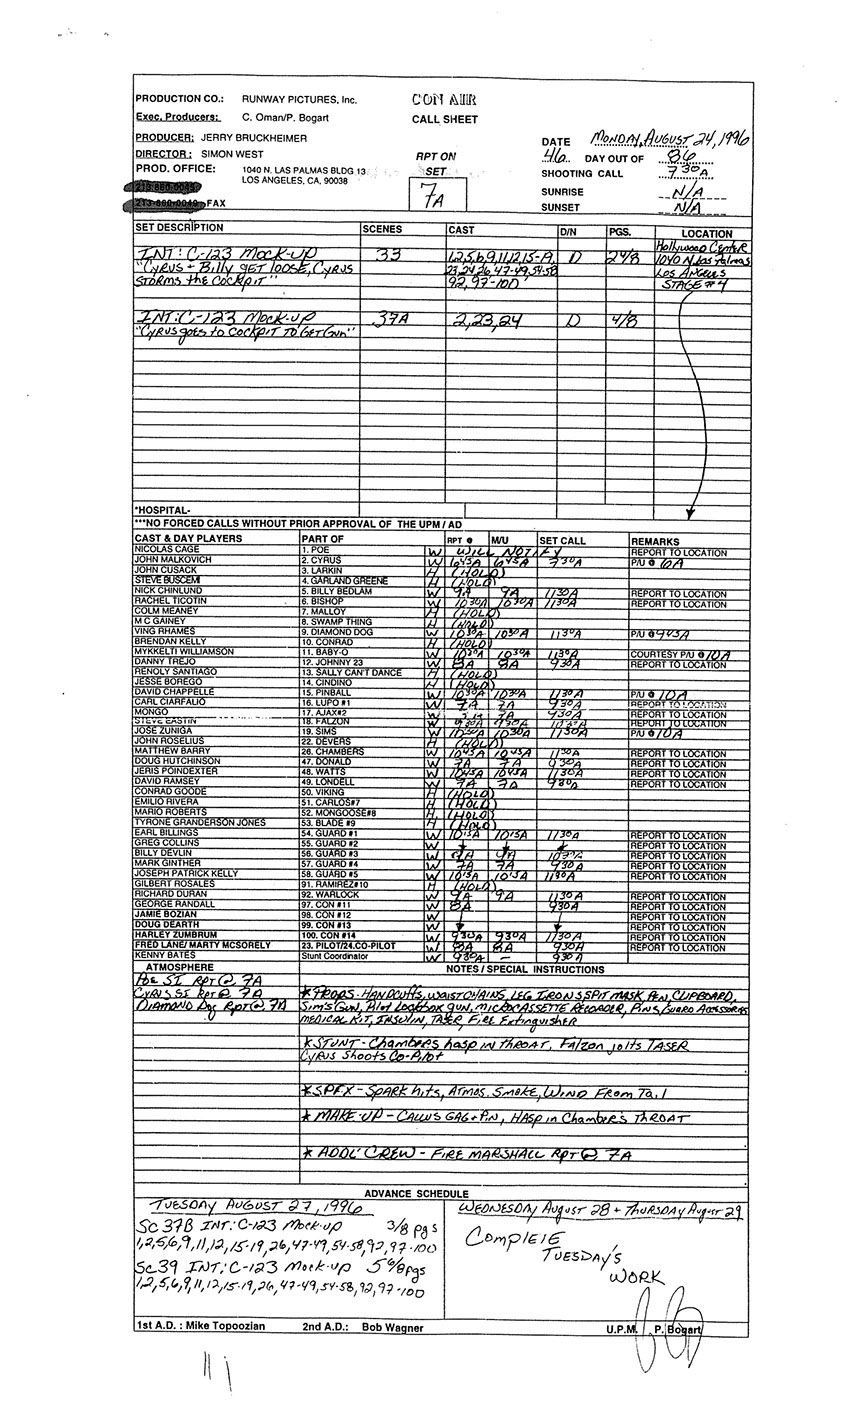 PRODUCTION CO.: RUNWAY PICTURES, Inc.
CON AIR
Exec. Producers: C. Oman/P. Bogart
CALL SHEET
PRODUCER: JERRY BRUCKHEIMER
DATE MONDAY, AUGUST 24, 1996
DIRECTOR: SIMON WEST
RPT ON
46 DAY OUT OF 86
PROD. OFFICE: 1040 N. LAS PALMAS BLDG 13
SET
SHOOTING CALL 7 30 A
LOS ANGELES, CA, 90038
7A
SUNRISE N/A
FAX
SUNSET N/A
SET DESCRIPTION SCENES CAST D/N PGS. LOCATION
INT: C-123 MOCK-UP 33 1,2,5,6,9,11,12,15-19, D 2 4/8 Hollywood Center
"CYRUS + Billy GET LOOSE, CYRUS 23,24,26,47-49,54-58 1040 N. Las Palmas
STORMS the COCKPIT" 92,97-100 LOS ANGELES
STAGE #4
INT: C-123 MOCK-UP 37A 2,23,24 D 4/8
"CYRUS goes to COCKPIT TO GET GUN"
*HOSPITAL-
***NO FORCED CALLS WITHOUT PRIOR APPROVAL OF THE UPM / AD
CAST & DAY PLAYERS PART OF RPT @ M/U SET CALL REMARKS
NICOLAS CAGE 1. POE W WILL NOTIFY REPORT TO LOCATION
JOHN MALKOVICH 2. CYRUS W 645A 645A 730A P/U @
JOHN CUSACK 3. LARKIN H (HOLD)
STEVE BUSCEMI 4. GARLAND GREENE H (HOLD)
NICK CHINLUND 5. BILLY BEDLAM W 9A 9A 1130A REPORT TO LOCATION
RACHEL TICOTIN 6. BISHOP W 1030A 1030A 1130A REPORT TO LOCATION
COLM MEANEY 7. MALLOY H (HOLD)
M C GAINEY 8. SWAMP THING H (HOLD)
VING RHAMES 9. DIAMOND DOG W 1030A 1030A 1130A P/U @ 945A
BRENDAN KELLY 10. CONRAD H (HOLD)
MYKKELTI WILLIAMSON 11. BABY-O W 1030A 1030A 1130A COURTESY P/U @ 10A
DANNY TREJO 12. JOHNNY 23 W 8A 8A 930A REPORT TO LOCATION
RENOLY SANTIAGO 13. SALLY CAN'T DANCE H (HOLD)
JESSE BOREGO 14. CINDINO H (HOLD)
DAVID CHAPPELLE 15. PINBALL W 1030A 1030A 1130A P/U @ 10A
CARL CIARFALIO 16. LUPO #1 W 7A 7A 930A REPORT TO LOCATION
MONGO 17. AJAX#2 W 7A 930A REPORT TO LOCATION
STEVE EASTIN 18. FALZON W 930A 930A 1130A REPORT TO LOCATION
JOSE ZUNIGA 19. SIMS W 1030A 1030A 1130A P/U @ 10A
JOHN ROSELIUS 22. DEVERS H (HOLD)
MATTHEW BARRY 26. CHAMBERS W 1045A 1045A 1130A REPORT TO LOCATION
DOUG HUTCHINSON 47. DONALD W 7A 7A 930A REPORT TO LOCATION
JERIS POINDEXTER 48. WATTS W 1045A 1045A 1130A REPORT TO LOCATION
DAVID RAMSEY 49. LONDELL W 7A 7A 930A REPORT TO LOCATION
CONRAD GOODE 50. VIKING H (HOLD)
EMILIO RIVERA 51. CARLOS#7 H (HOLD)
MARIO ROBERTS 52. MONGOOSE#8 H (HOLD)
TYRONE GRANDERSON JONES 53. BLADE #9 H (HOLD)
EARL BILLINGS 54. GUARD #1 W 1015A 1015A 1130A REPORT TO LOCATION
GREG COLLINS 55. GUARD #2 W REPORT TO LOCATION
BILLY DEVLIN 56. GUARD #3 W 9A 9A REPORT TO LOCATION
MARK GINTHER 57. GUARD #4 W 7A 7A 930A REPORT TO LOCATION
JOSEPH PATRICK KELLY 58. GUARD #5 W 1015A 1015A 1130A REPORT TO LOCATION
GILBERT ROSALES 91. RAMIREZ#10 H (HOLD)
RICHARD DURAN 92. WARLOCK W 9A 9A 1130A REPORT TO LOCATION
GEORGE RANDALL 97. CON #11 W 8A 930A REPORT TO LOCATION
JAMIE BOZIAN 98. CON #12 W REPORT TO LOCATION
DOUG DEARTH 99. CON #13 W REPORT TO LOCATION
HARLEY ZUMBRUM 100. CON #14 W 930A 930A 1130A REPORT TO LOCATION
FRED LANE/ MARTY MCSORELY 23. PILOT/24.CO-PILOT W 8A 8A 930A REPORT TO LOCATION
KENNY BATES Stunt Coordinator W 930A - 930A
ATMOSPHERE NOTES / SPECIAL INSTRUCTIONS
POE SI RPT @ 7A
CYRUS SI RPT @ 7A
DIAMOND Dog RPT @ 7A
* PROPS - HANDCUFFS, WAISTCHAINS, LEG IRONS, SPIT MASK, PEN, CLIPBOARD,
Sim's GUN, Pilot Lockbox gun, MICROCASSETTE RECORDER, Pins/Guard Accessories
MEDICAL KIT, INSULIN, TASER, FIRE EXTINGUISHER
* STUNT - Chambers hasp in THROAT, Falzon jolts TASER
CYRUS Shoots Co-Pilot
* SPFX - SPARK hits, ATMOS. SMOKE, WIND FROM Tail
* MAKE-UP - CALLUS GAG + PIN, HASP in Chamber's THROAT
* ADDL' CREW - FIRE MARSHALL RPT @ 7A
ADVANCE SCHEDULE
TUESDAY AUGUST 27, 1996
SC 37B INT: C-123 MOCK-UP 3/8 pgs
1,2,5,6,9,11,12,15-19,26,47-49,54-58,92,97-100
SC 39 INT: C-123 MOCK-UP 5 6/8 pgs
1,2,5,6,9,11,12,15-19,26,47-49,54-58,92,97-100
WEDNESDAY August 28 + THURSDAY August 29
COMPLETE
TUESDAY'S
WORK
1st A.D. : Mike Topoozian 2nd A.D.: Bob Wagner U.P.M. P. Bogart